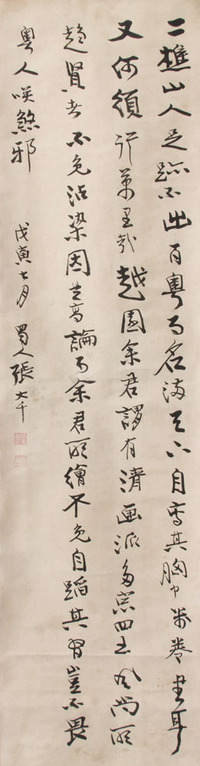 二樵山人足跡不出百粵而名滿天下自寫其胸中萬卷書耳
又何須行萬里哉越園余君謂有清画派多宗四王風尚所
趨賢者不免沾染因其高論而余君所繪不免自蹈其習豈不畏
粵人咲煞邪 戊寅七月 蜀人張大千